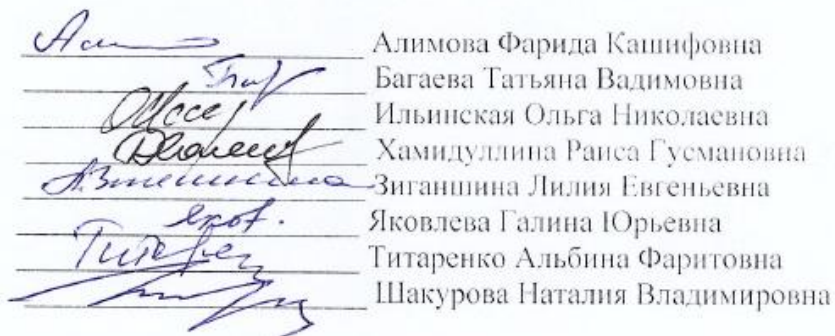 Алимова Фарида Кашифовна
Багаева Татьяна Вадимовна
Ильинская Ольга Николаевна
Хамидуллина Раиса Гусмановна
Зиганшина Лилия Евгеньевна
Яковлева Галина Юрьевна
Титаренко Альбина Фаритовна
Шакурова Наталия Владимировна